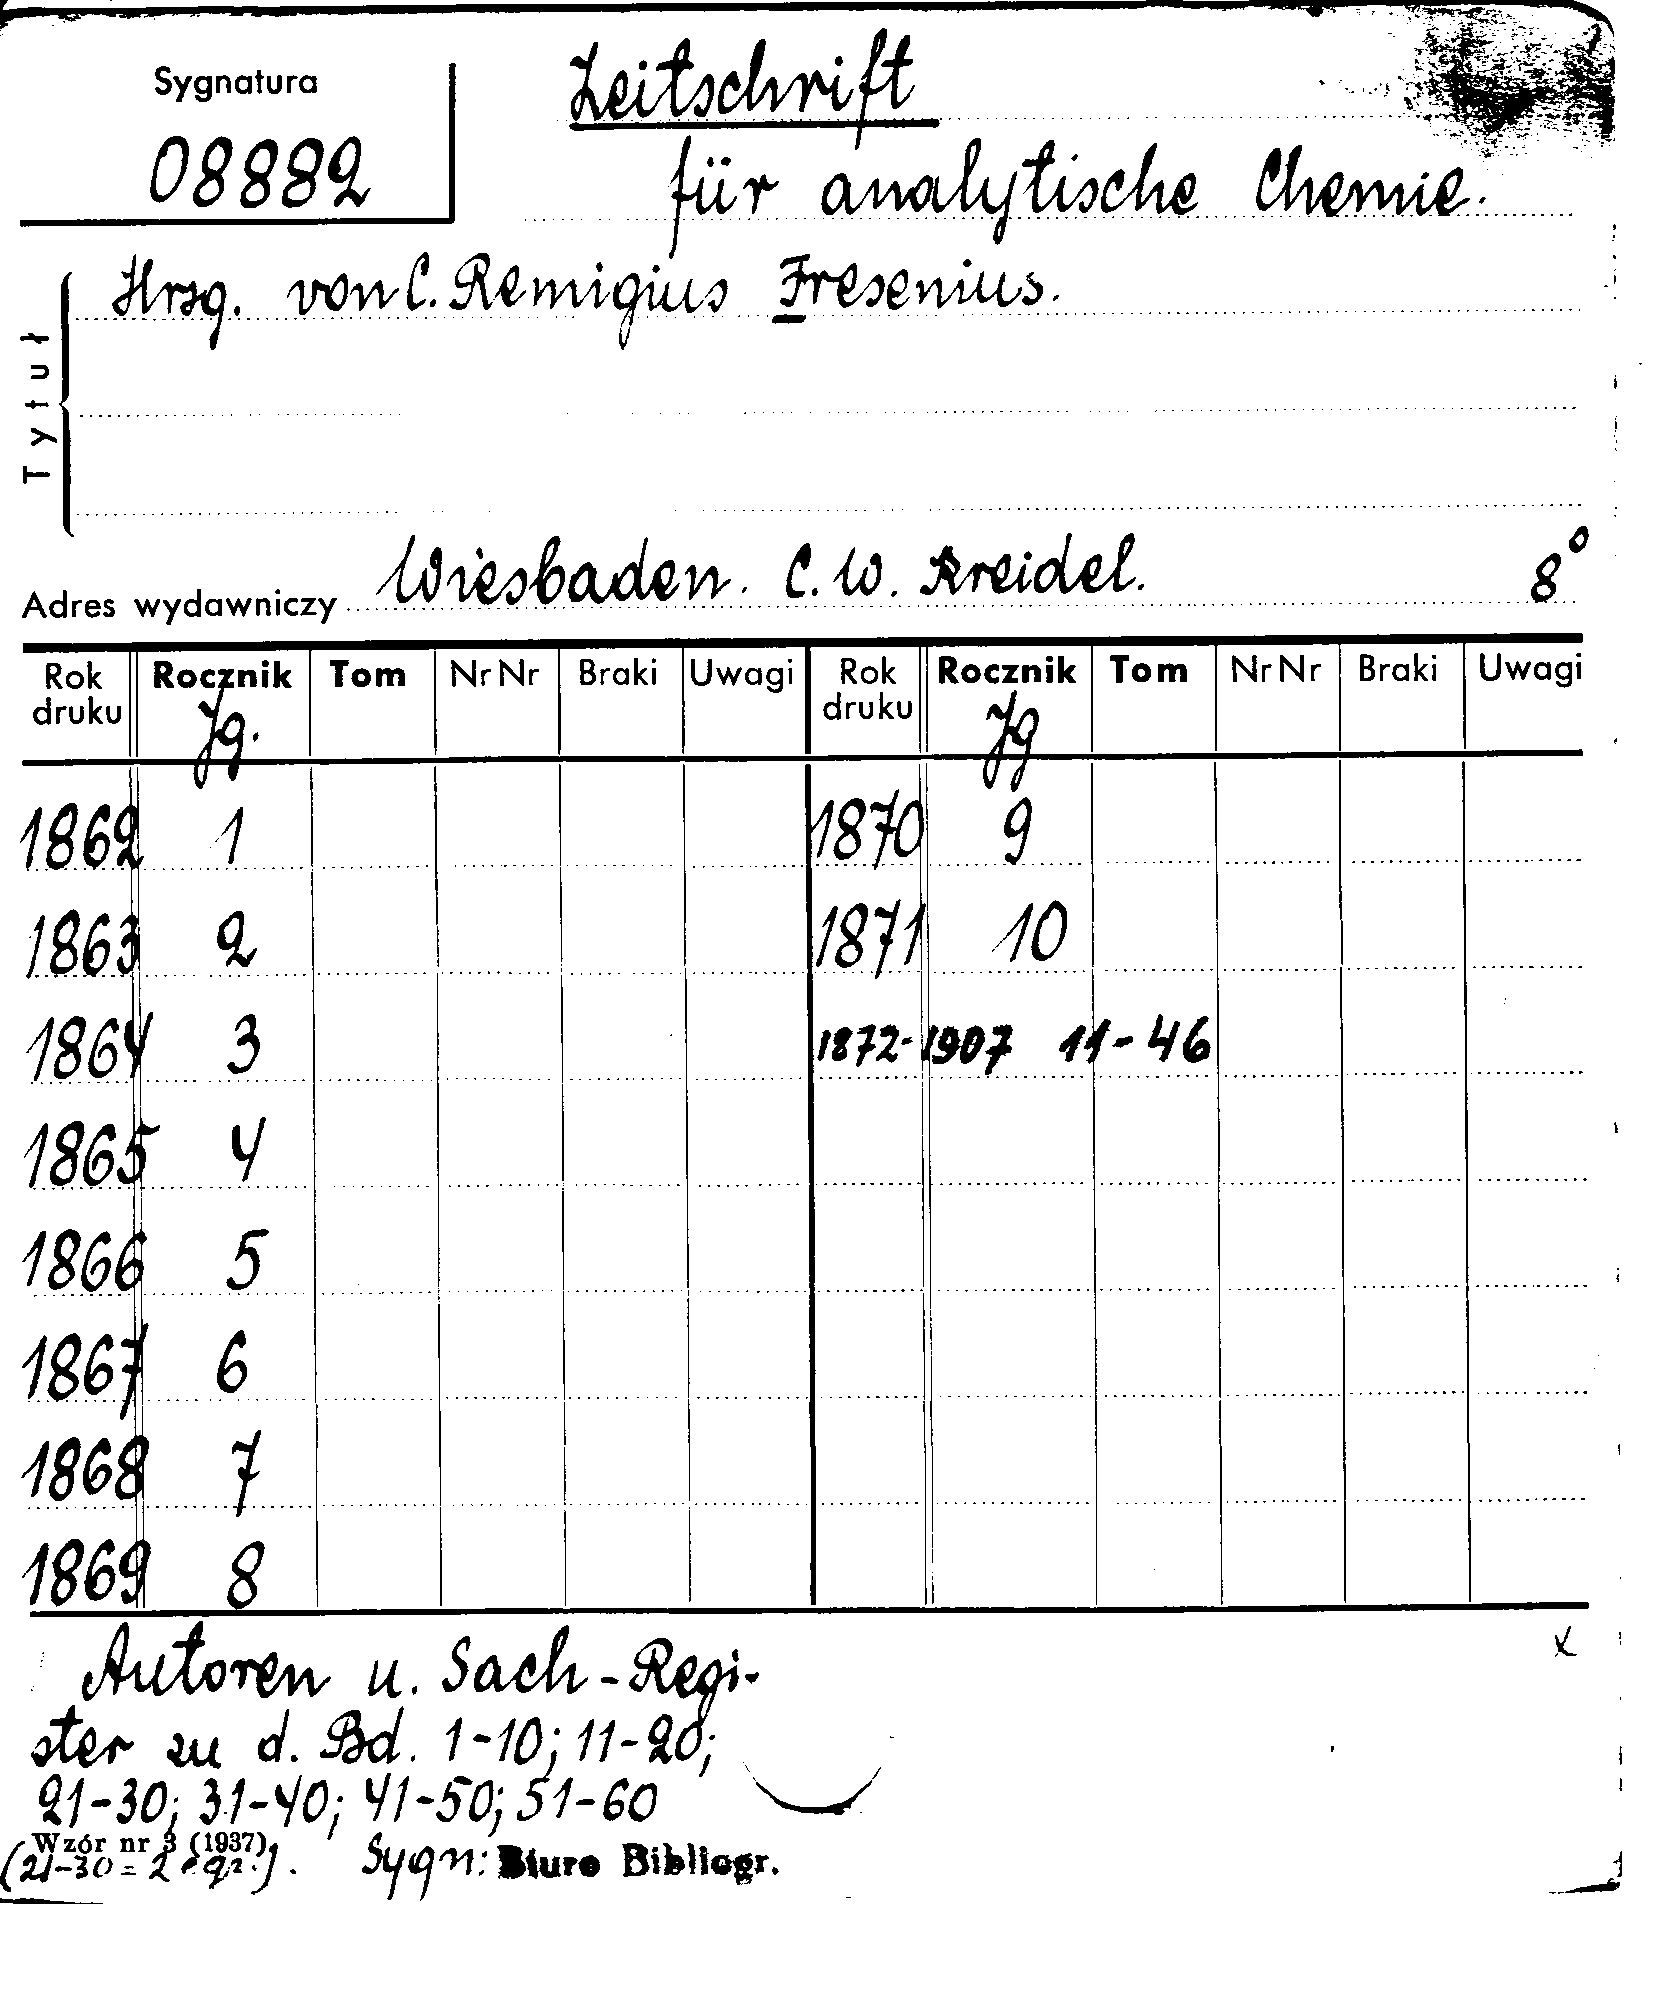 Sygnatura
08882
Zeitschrift
für analytische Chemie.
Tytuł
Hrsg. von C. Remigius Fresenius.
Adres wydawniczy Wiesbaden. C. W. Kreidel. 8°
Rok druku Rocznik Tom Nr Nr Braki Uwagi Rok druku Rocznik Tom Nr Nr Braki Uwagi
Jg. Jg
1862 1 1870 9
1863 2 1871 10
1864 3 1872-1907 11-46
1865 4
1866 5
1867 6
1868 7
1869 8
x
Autoren u. Sach-Regi-
ster zu d. Bd. 1-10; 11-20;
21-30; 31-40; 41-50; 51-60
Wzór nr 3 (1937)
(21-30 = 2 egz.). Sygn: Biuro Bibliogr.